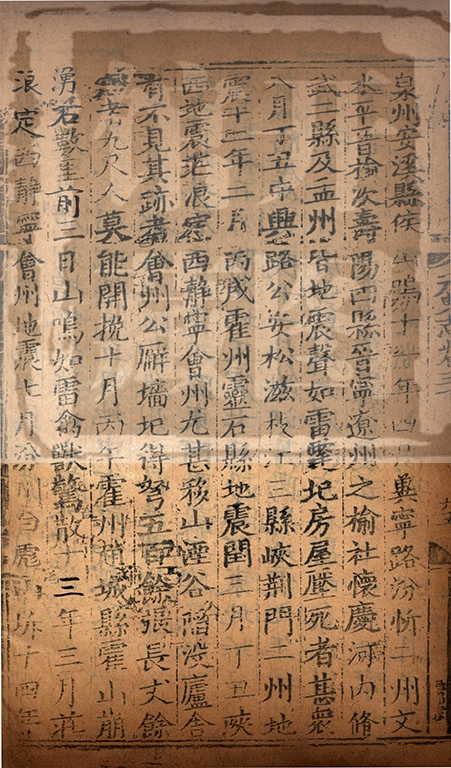 泉州安溪縣侯山鳴十一年四月冀寧路汾忻二州文
水平晉榆次壽陽四縣晉寧遼州之榆社懷慶河內脩
武二縣及孟州皆地震聲如雷霆圮房屋壓死者甚衆
八月丁丑中興路公安松滋枝江三縣峽荊門二州地
震十二年二月丙戌霍州靈石縣地震閏三月丁丑陝
西地震莊浪定西靜寧會州尤甚移山湮谷陷没廬舍
有不見其跡者會州公廨墻圮得弩五百餘張長丈餘
短者九尺人莫能開挽十月丙午霍州趙城縣霍山崩
湧石數里前三日山鳴如雷禽獸驚散十三年三月莊
浪定西靜寧會州地震七月汾州白彪山坼十四年